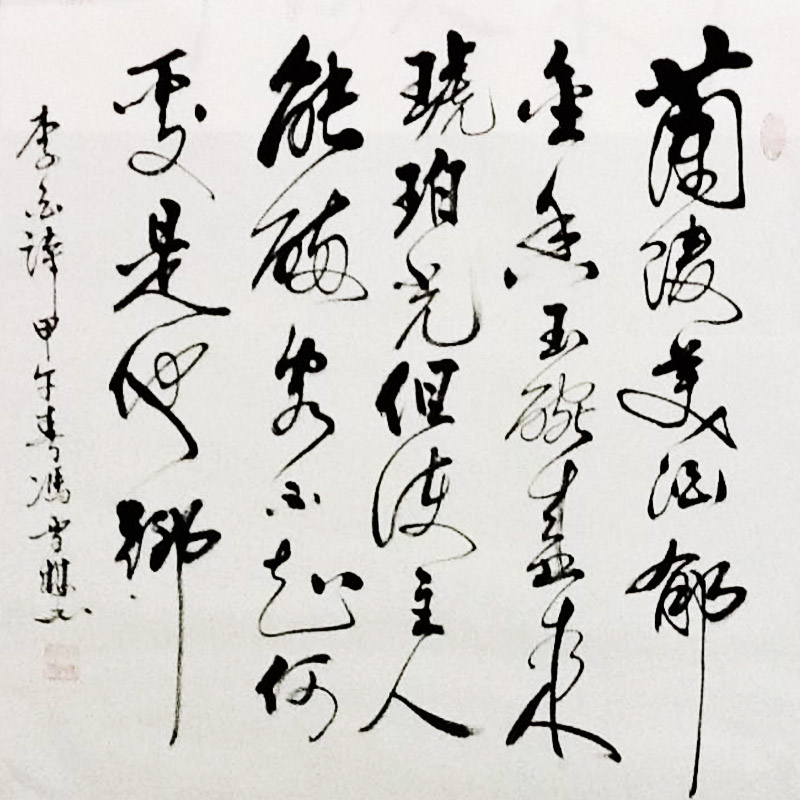 蘭陵美酒郁
金香玉碗盛来
琥珀光但使主人
能醉客不知何
處是他鄉
李白詩甲午春馮雪